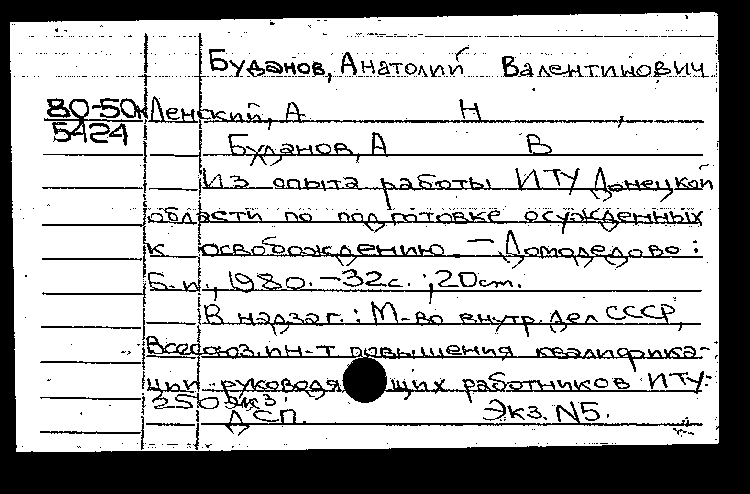 Буданов, Анатолий Валентинович
80-50к Ленский, А Н ,
5424
Буданов, А В
Из опыта работы ИТУ Донецкой
области по подготовке осужденных
к освобождению. — Домодедово :
Б.и., 1980. – 32с. ; 20см.
В надзаг.: М-во внутр. дел СССР,
Всесоюз. ин-т повышения квалифика-
ции руководящих работников ИТУ.
250 экз.
ДСП. Экз. N5.